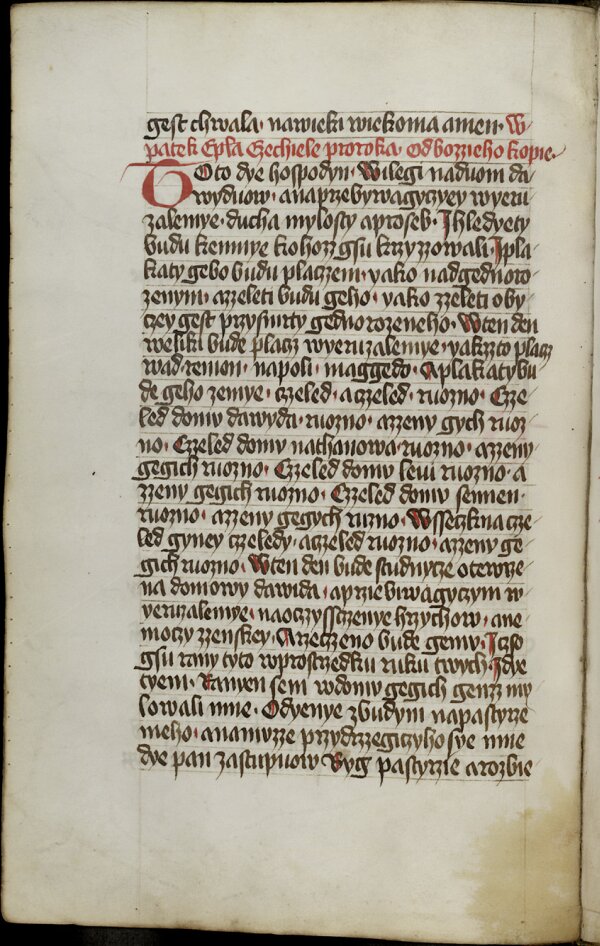 gest chwala· nawieki wiekoma amen· W
patek Epła Ezechiele proroka Od bozzieho kopie·
Toto dye hospodyn· Wilegi naduom da
wyduow· anaprzebywagyczyey wyeru
zalemye· ducha mylosty aproseb· Ihledyety
budu kemnye kohozz gsu krzyzzowali· Ipla
katy gebo budu placzem· yako nadgednoro
zenym· azzeleti budu geho· yako zzeleti oby
czey gest przysmrty gednorozeneho· Wten den
weliki bude placz wyeruzalemye· yakzto placz
wad remon· napoli· maggedo· Aplakaty bu
de geho zemye· czeled· aczeled· ruozno· Cze
led domu dawyda· ruozno· azzeny gych ruoz
no· Czeled domu nathanowa· ruozno· azzeny
gegich ruozno· Czeled domu leui ruozno· a
zzeny gegich ruozno· Czeled domu semen·
ruozno· azzeny gegych ruzno· Wsseczkna cze
led gyney czeledy· aczeled ruozno· azzeny ge
gich ruozno· Wten den bude studnycze otewrze
na domowy dawida· aprziebiwagyczym w
yeruzalemye· naoczyssczenye hrzychow· ane
moczy zzenskey· Arzeczeno bude gemu· I czso
gsu rany tyto wprostrzedku ruku twych· Idye
tyem· Ranyen sem wdomu gegich genzz my
lowali mne· Odyenye zbudym napastyrze
meho· ananuzze przydrzzegiczyhosye mne
dye pan zastupuow Byg pastyrzie arozbie